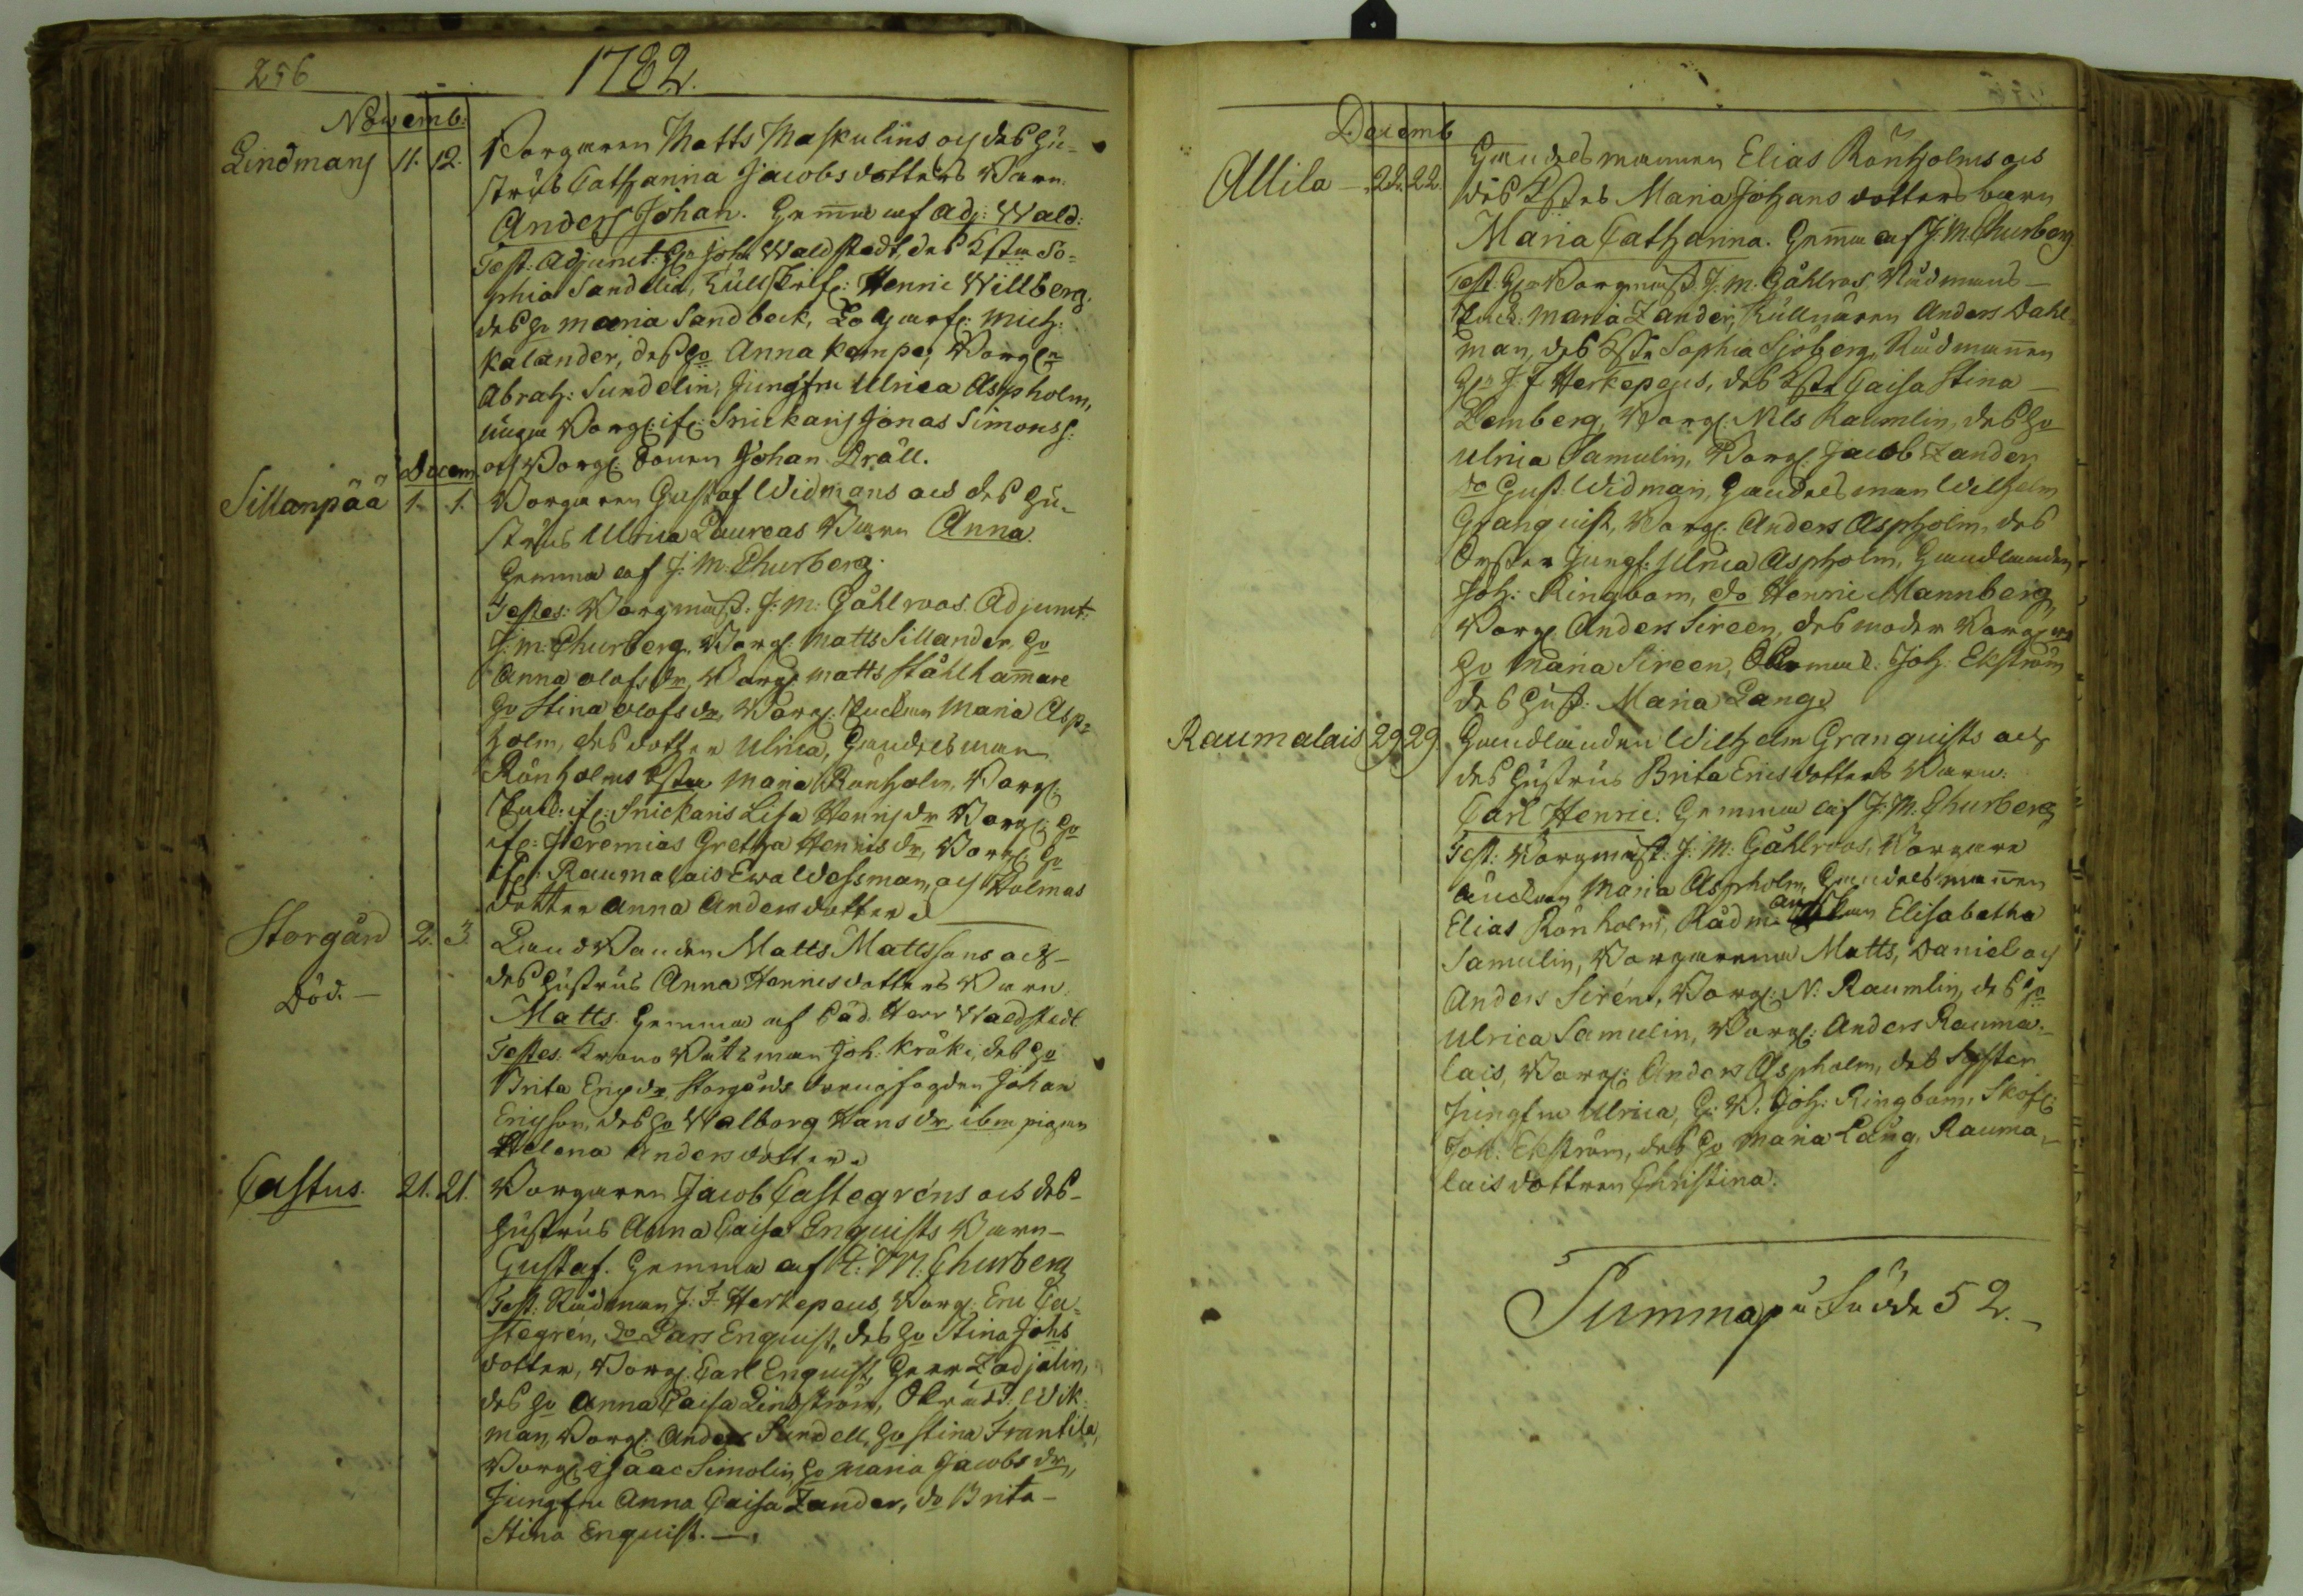 256
1782.
Novemb.
Lindmans 11. 12. Borgaren Matts Maskulins och des Hu-
strus Catharina Jacobsdotters Barn
Anders Johan. Hemma af Adj: Wald:
Test: Adjunct: Hr Joh: Waldstedt, des Kstm So-
phia Sandelia, Henric Willberg,
des Ho Maria Sandbeck, Mich:
Kalander, des Ho Anna Kempe, Borg:n
Abrah: Sundelin, Jungfru Ulrica Aspholm,
unga Borg: if: Snickars Jonas Simonss:
och Borg: Sonen Johan Dräll.
Decem
Sillanpää 1. 1. Borgaren Gustaf Widmans och des Hu-
strus Ulrica Laureas Barn Anna.
Hemma af J: M: Churberg.
Testes: Borgmäst: J: M: Gåhlroos. Adjunct:
J: M: Churberg, Borg: Matts Sillander, Ho
Anna Olofsdr, Borg: Matts Stålhammare
Ho Stina Olofsdr, Borg: Enckan Maria Asp-
holm, des dotter Ulrica, Handelsman
Rönholms Kstm Maria Rönholm, Borg:
Enck: if: Snickaris Lisa Henrisdr Borg: Ho
if: Jeremias Gretha Henrisdr, Borg: Ho
if: Raumalais Ewa Wessman, och Holmas
dotter Anna Andersdotter.
Storgård 2. 3. Landbonden Matts Mattssons och
Död. des Hustrus Anna Henricsdotters Barn
Matts. Hemma af Herr Waldstedt
Testes: Krono Båtsman Joh: Kråk, des Ho
Brita Ericsdr, Storgårds Johan
Ericsson, des Ho Walborg Hansdr, ibm pigan
Helena Andersdotter.
Castus. 21. 21. Borgaren Jacob Castegréns och des
Hustrus Anna Caisa Enquists Barn
Gustaf. Hemma af A: M: Churberg
Test: Rådman J: F: Herkepeus, Borg: Eric Ca-
stegrén, do Lars Enquist, des Ho Stina Johs
dotter, Borg: Carl Enquist, Herr Zadjalin,
des Ho Anna Caisa Lindström, Ålderm: Wik-
man, Borg: Anders Sundell, Ho Stina Frantila,
Borg: Isaac Simolin, Ho Maria Jacobsdr,
Jungfru Anna Caisa Zander, do Brita
Stina Enquist.
Decemb
Allila 22. 22. Handelsmannen Elias Rönholms och
des Kstes Maria Johansdotters barn
Maria Catharina. Hemma af J: M: Churberg
Test: Hr Borgmäst: J: M: Gåhlroos, Rådmans
Enck: Maria Zander, Källmären Anders Dahl-
man, des Kste Sophia Sjöberg, Rådmannen
Hr J: F: Herkepeus, des Kste Caisa Stina
Lemberg, Borg: Nils Raumlin, des Ho
Ulrica Samulin, Borg: Jacob Zander,
do Gust: Widman, Handelsman Wilhelm
Granquist, Borg: Anders Aspholm, des
Syster Jungf: Ulrica Aspholm, Handlanden
Joh: Ringbom, do Henric Mannberg,
Borg: Anders Sireen, des moder
Ho Maria Sireen, Joh: Ekström
des Hust: Maria Lang.
Raumalais 29 29 Handlanden Wilhelm Granquists och
des Hustrus Brita Ericsdotters Barn:
Carl Henric. Hemma af J: M: Churberg
Test: Borgmäst: J: M: Gåhlroos, Borgare
änckan Maria Aspholm, Handelsmannen
Elias Rönholm, Rådm: anckan Elisabetha
Samulin, Borgarena Matts, Daniel och
Anders Sirén, Borg: N: Raumlin, des Ho
Ulrica Samulin, Borg: Anders Rauma-
lais, Borg: Anders Aspholm, des Syster
Jungfru Ulrica, H: B: Joh: Ringbom, Skof:
Joh: Ekström, des Ho Maria Lang, Rauma-
lais dottren Christina.
Summa på Födde 52.